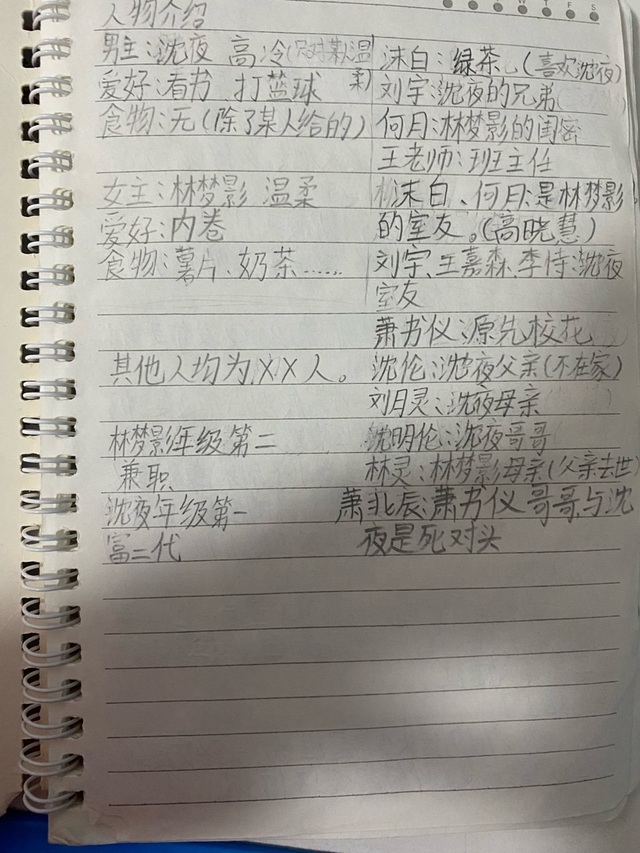 人物介绍
W T F S
男主:沈夜 高冷(只对某人温柔)
爱好:看书 打篮球
食物:无(除了某人给的)
女主:林梦影 温柔
爱好:内卷
食物:薯片、奶茶……
其他人均为XX人。
林梦影年级第二
兼职
沈夜年级第一
富二代
沫白:绿茶、(喜欢沈夜)
刘宇:沈夜的兄弟
何月:林梦影的闺密
王老师:班主任
沫白、何月:是林梦影
的室友。(高晓慧)
刘宇、王嘉森、李恃:沈夜
室友
萧书仪:原先校花
沈伦:沈夜父亲(不在家)
刘月灵:沈夜母亲
沈明伦:沈夜哥哥
林灵:林梦影母亲(父亲去世)
萧北辰:萧书仪哥哥与沈
夜是死对头